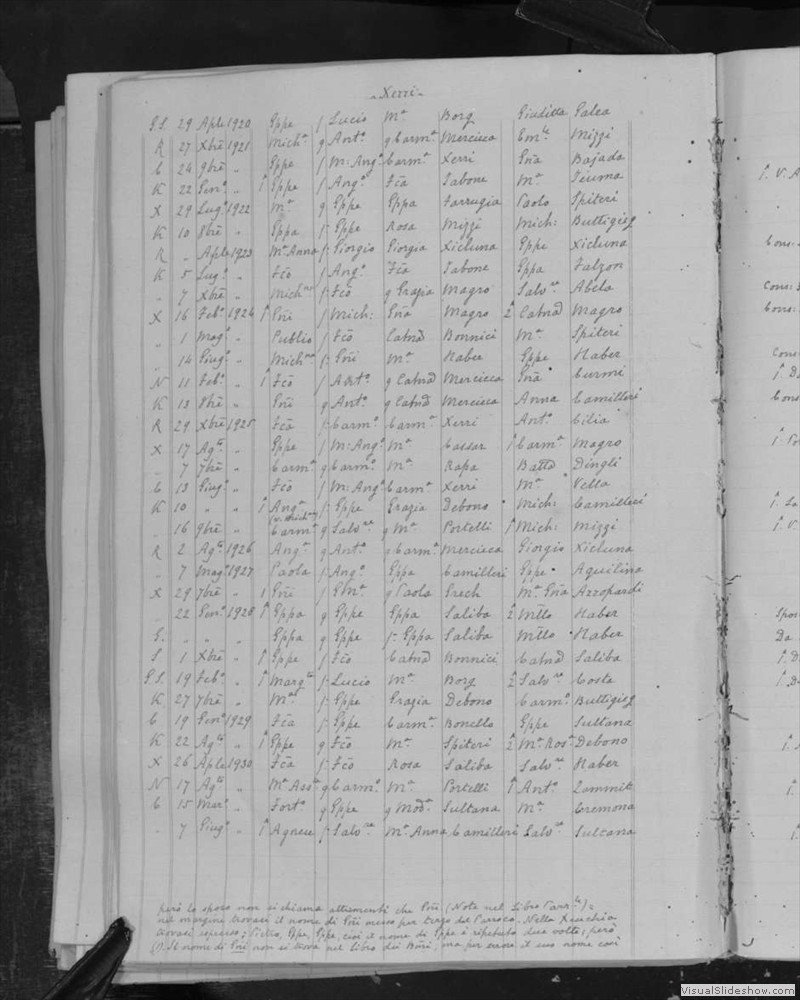 Xerri
G.S. 29 Aple 1920 Gppe f Lucio Mª Borg Giuditta Galea
R 27 Xbre 1921 Michª g Antº g Carmª Mercieca Emle Mizzi
C 24 9bre " Gppe f M: Angº Carmª Xerri Gña Bajada
K 22 Genº " 1º Gppe f Angº Fca Tabone Mª Teuma
X 29 Lugº 1922 Mª g Gppe Gppa Farrugia Paolo Spiteri
K 10 8bre " Gppa f: Gppe Rosa Mizzi Mich: Buttigieg
R " Aple 1923 Mª Anna f: Giorgio Giorgia Xicluna Gppe Xicluna
K 5 Lugº " Fcõ f Angº Fca Tabone Gppa Falzon
" 7 Xbre " Michna f: Fcõ g Grazia Magro Salvre Abela
X 16 Febº 1924 1º Gñi f Mich: Gña Magro 2ª Catnã Magro
" 1 Magº " Publio f Fcõ Catnã Bonnici Mª Spiteri
" 14 Giugº " Michna f: Gñi Mª Haber Gppe Haber
N 11 Febº " 1º Fcõ f Antº g Catnã Mercieca Gña Curmi
K 13 8bre " Gñi g Antº g Catnã Mercieca Anna Camilleri
R 29 Xbre 1925 Fca f: Carmº Carmª Xerri Antº Cilia
X 17 Agto " Gppe f M: Angº Mª Cassar 1º Carmª Magro
" 7 7bre " Carmª g Carmº Mª Rapa Batta Dingli
C 13 Giugº " Fcõ f M: Angº Carmª Xerri Mª Vella
K 10 " " 1º Angª f: Gppe Grazia Debono Mich: Camilleri
" 16 9bre " Carmª g Salvre g Mª Portelli 1º Mich: Mizzi
R 2 Agto 1926 Angª g Antº g Carmª Mercieca Giorgio Xicluna
" 7 Magº 1927 Paola f: Angº Gppa Camilleri Gppe Aquilina
X 29 7bre " 1 Gñi f g Paola Grech Mª Gña Azzopardi
" 22 Genº 1928 1º Gppa g Gppe Gppa Saliba 2º Mtto Haber
G. " " " Gppa g Gppe f: Gppa Saliba Mtto Haber
S 1 Xbre " 1º Gppe f Fcõ Catnã Bonnici Catnã Saliba
G.S. 19 Febº " 1º Margta f: Lucio Mª Borg 2º Salvre Costa
K 27 7bre " Mª f: Gppe Grazia Debono Carmº Buttigieg
C 19 Genº 1929 Fca f: Gppe Carmª Bonello Gppe Sultana
K 22 Agto " 1º Gppe g Fcõ Mª Spiteri 2ª Mª Rosª Debono
X 26 Aple 1930 Fca f: Fcõ Rosa Saliba Salvre Haber
N 17 Agto " Mª Assª g Carmº Mª Portelli 1º Antº Zammit
C 15 Marº " Fortº g Gppe g Modª Sultana Mª Cremona
" 7 Giugº " 1º Agnese f: Salvre Mª Anna Camilleri Salvre Sultana
però lo sposo non si chiama altrimenti che Gñi (Nota nel Libro Parrle) =
nel margine trovasi il nome di Gñi messo per tergo dal Parroco. Nella Xewkija
trovasi espresso; Pietro, Gppe, Gppe, cioè il nome di Gppe è ripetuto due volte; però
(1). Il nome di Gñi non si trova nel libro dei ma per errore il suo nome così
VisualSlideshow.com